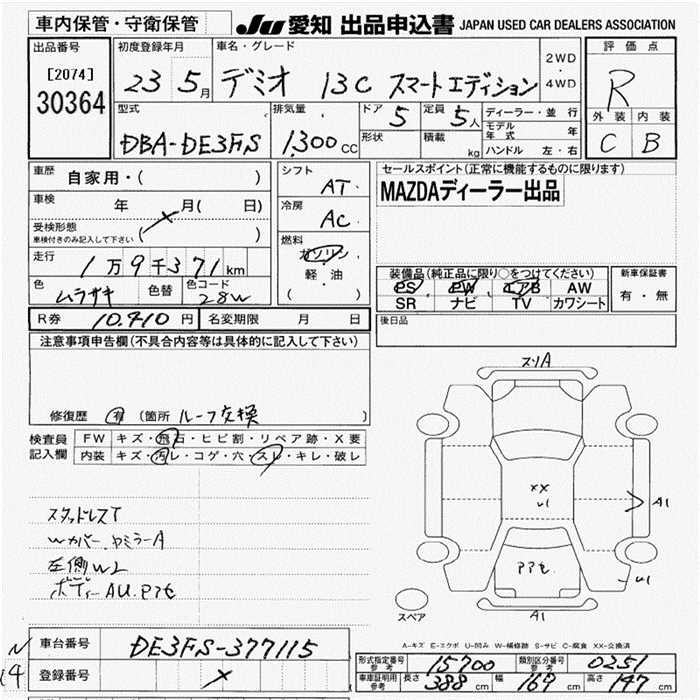 車内保管・守衛保管 JU 愛知 出品申込書 JAPAN USED CAR DEALERS ASSOCIATION
出品番号 初度登録年月 車名・グレード 2WD・4WD 評価点
[2074] 23 5月 デミオ 13C スマートエディション R
30364
型式 排気量 ドア 5 定員 5人 ディーラー・並行 外装 内装
DBA-DE3FS 1,300cc 形状 積載 kg モデル年式 年 C B
ハンドル 左・右
車歴 自家用・( ) シフト AT セールスポイント(正常に機能するものに限ります)
車検 年 月( 日) 冷房 AC MAZDAディーラー出品
受検形態 ( )
車検付きのみ記入して下さい
走行 1万9千371km 燃料 ガソリン・軽・油 ( )
装備品(純正品に限り○をつけてください) 新車保証書
PS PW エアB AW 有・無
SR ナビ TV カワシート
色 ムラサキ 色替 色コード 28W
R券 10,410円 名変期限 月 日 後日品
注意事項申告欄(不具合内容等は具体的に記入して下さい)
修復歴 有 (箇所 ルーフ交換 )
検査員 FW キズ・飛石・ヒビ割・リペア跡・X要
記入欄 内装 キズ・汚レ・コゲ・穴・スレ・キレ・破レ
スリA
XX
U1
A1
U1
アアセ
A1
スペア
スタッドレスT
Wカバー、ドミラーA
左側W2
ボディーAU.アアセ
A-キズ E-エクボ U-凹み W-補修跡 S-サビ C-腐食 XX-交換済
車台番号 DE3FS-377115
登録番号
形式指定番号 参考 15700 類別区分番号 参考 0251
車庫証明用 参考 長さ 388cm 幅 169cm 高さ 147cm